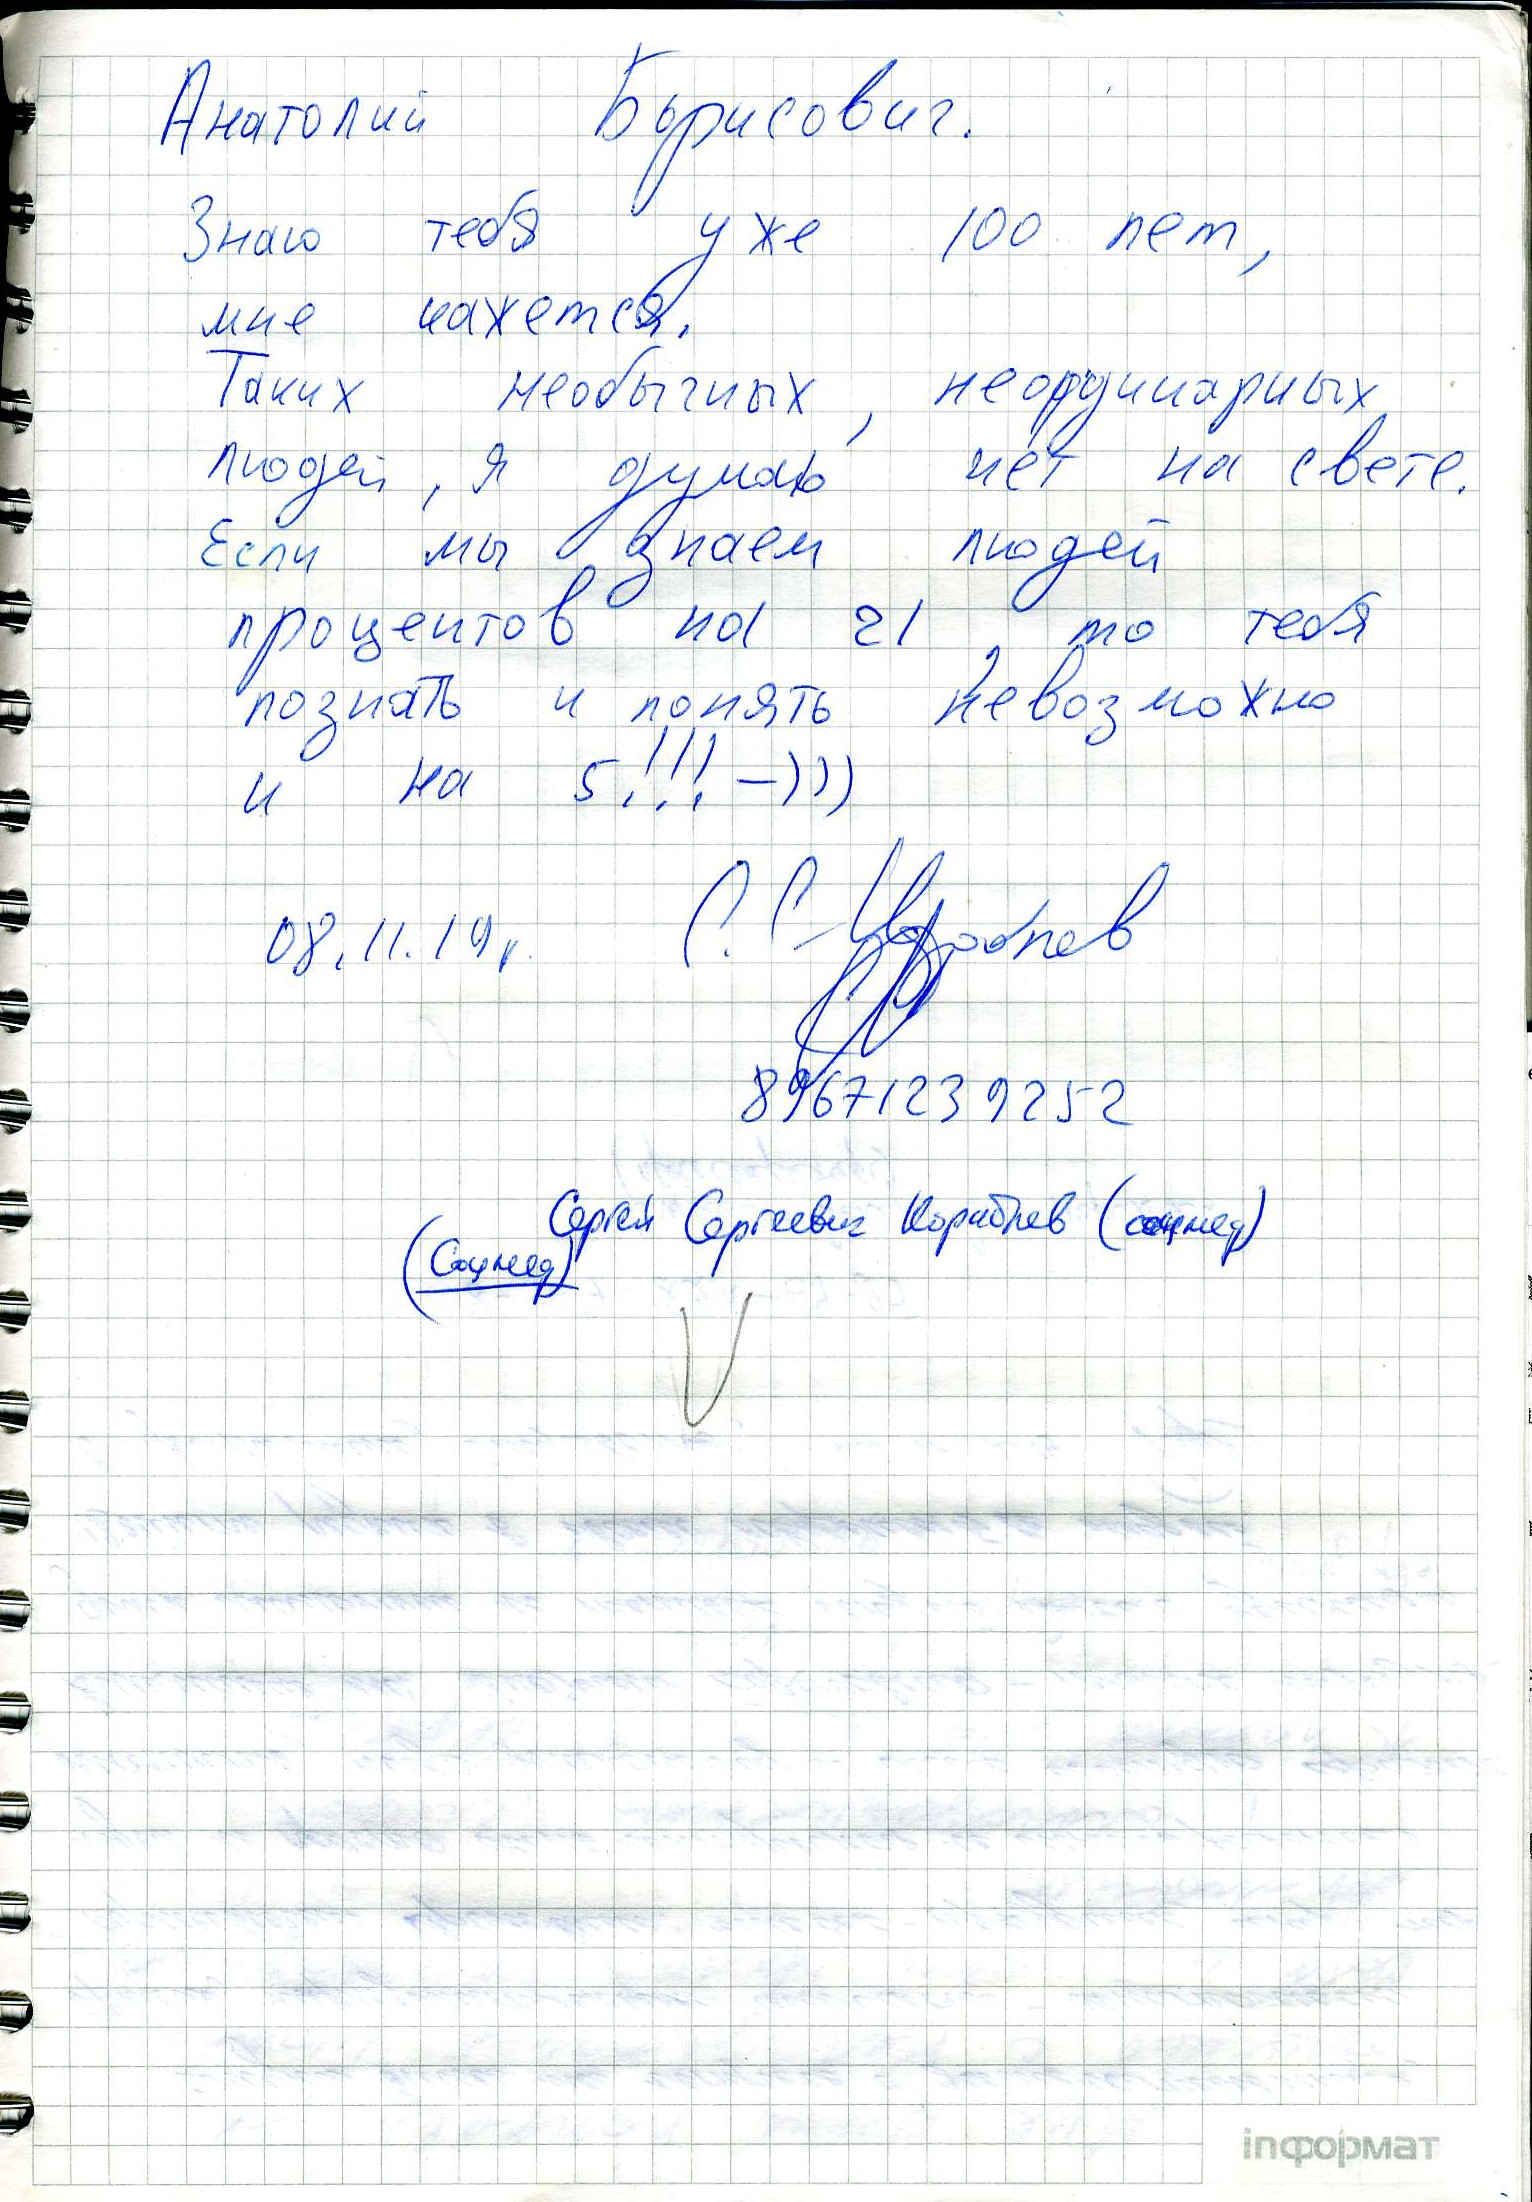 Анатолий Борисович.
Знаю тебя уже 100 лет,
мне кажется.
Таких необычных, неординарных
людей, я думаю нет на свете.
Если мы знаем людей
процентов на 21, то тебя
познать и понять невозможно
и на 5!!! –)))
08.11.19г. С.С. Кораблев
89671239252
Сергей Сергеевич Кораблев (соцмед)
(Соцмед)
inформат